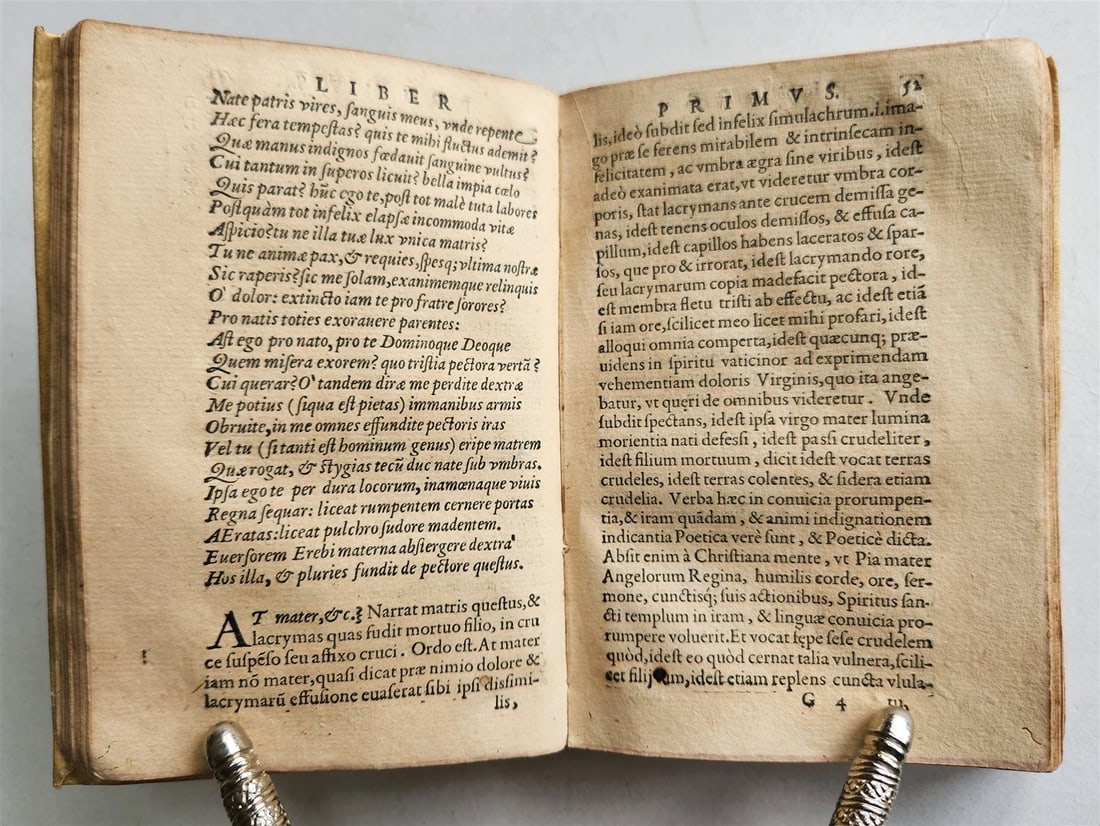 LIBER
Nate patris vires, ſanguis meus, vnde repente
Hæc fera tempeſtas? quis te mihi fluctus ademit?
Quæ manus indignos fœdauit ſanguine vultus?
Cui tantum in ſuperos licuit? bella impia cœlo
Quis parat? hũc ego te, poſt tot malè tuta labores
Poſtquàm tot infelix elapſæ incommoda vitæ
Aſpicio? tu ne illa tuæ lux vnica matris?
Tu ne animæ pax, & requies, ſpesq; vltima noſtræ
Sic raperis? ſic me ſolam, exanimemque relinquis
O' dolor: extincto iam te pro fratre ſorores?
Pro natis toties exorauere parentes:
Aſt ego pro nato, pro te Dominoque Deoque
Quem miſera exorem? quo triſtia pectora vertã?
Cui querar? O' tandem diræ me perdite dextræ
Me potius (ſiqua eſt pietas) immanibus armis
Obruite, in me omnes effundite pectoris iras
Vel tu (ſi tanti eſt hominum genus) eripe matrem
Quæ rogat, & ſtygias tecũ duc nate ſub vmbras.
Ipſa ego te per dura locorum, inamœnaque viuis
Regna ſequar: liceat rumpentem cernere portas
AEratas: liceat pulchro ſudore madentem.
Euerſorem Erebi materna abſtergere dextra'
Hos illa, & pluries fundit de pectore queſtus.
AT mater, &c.} Narrat matris queſtus, &
lacrymas quas fudit mortuo filio, in cru
ce ſuspẽſo ſeu affixo cruci. Ordo eſt. At mater
iam nõ mater, quaſi dicat præ nimio dolore &
lacrymarũ effuſione euaſerat ſibi ipſi diſſimi-
lis,
PRIMVS. 52
lis, ideò ſubdit ſed infelix ſimulachrum .i. ima-
go præ ſe ferens mirabilem & intrinſecam in-
felicitatem, ac vmbra ægra ſine viribus, ideſt
adeò exanimata erat, vt videretur vmbra cor-
poris, ſtat lacrymans ante crucem demiſſa ge-
nas, ideſt tenens oculos demiſſos, & effuſa ca-
pillum, ideſt capillos habens laceratos & ſpar-
ſos, que pro & irrorat, ideſt lacrymando rore,
ſeu lacrymarum copia madefacit pectora, id-
eſt membra fletu triſti ab effectu, ac ideſt etiã
ſi iam ore, ſcilicet meo licet mihi profari, ideſt
alloqui omnia comperta, ideſt quæcunq; præ-
uidens in ſpiritu vaticinor ad exprimendam
vehementiam doloris Virginis, quo ita ange-
batur, vt queri de omnibus videretur. Vnde
ſubdit ſpectans, ideſt ipſa virgo mater lumina
morientia nati defeſſi, ideſt paſſi crudeliter,
ideſt filium mortuum, dicit ideſt vocat terras
crudeles, ideſt terras colentes, & ſidera etiam
crudelia. Verba hæc in conuicia prorumpen-
tia, & iram quãdam, & animi indignationem
indicantia Poetica verè ſunt, & Poeticè dicta.
Abſit enim à Chriſtiana mente, vt Pia mater
Angelorum Regina, humilis corde, ore, ſer-
mone, cunctisq; ſuis actionibus, Spiritus ſan-
cti templum in iram, & linguæ conuicia pro-
rumpere voluerit. Et vocat ſępe ſeſe crudelem
quòd, ideſt eo quòd cernat talia vulnera, ſcili-
cet filij tum, ideſt etiam replens cuncta vlula-
G 4